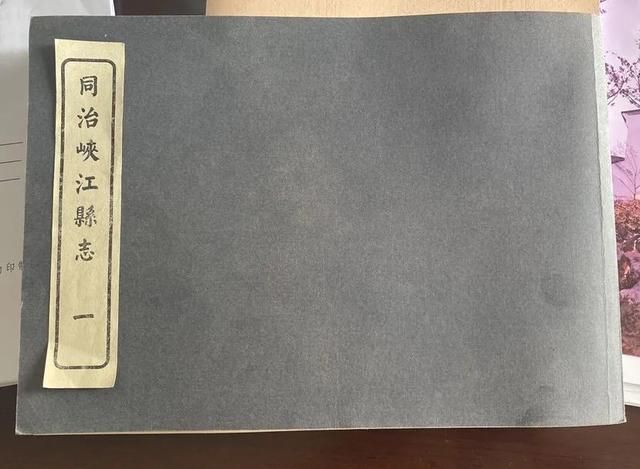 同治峽江縣志 一